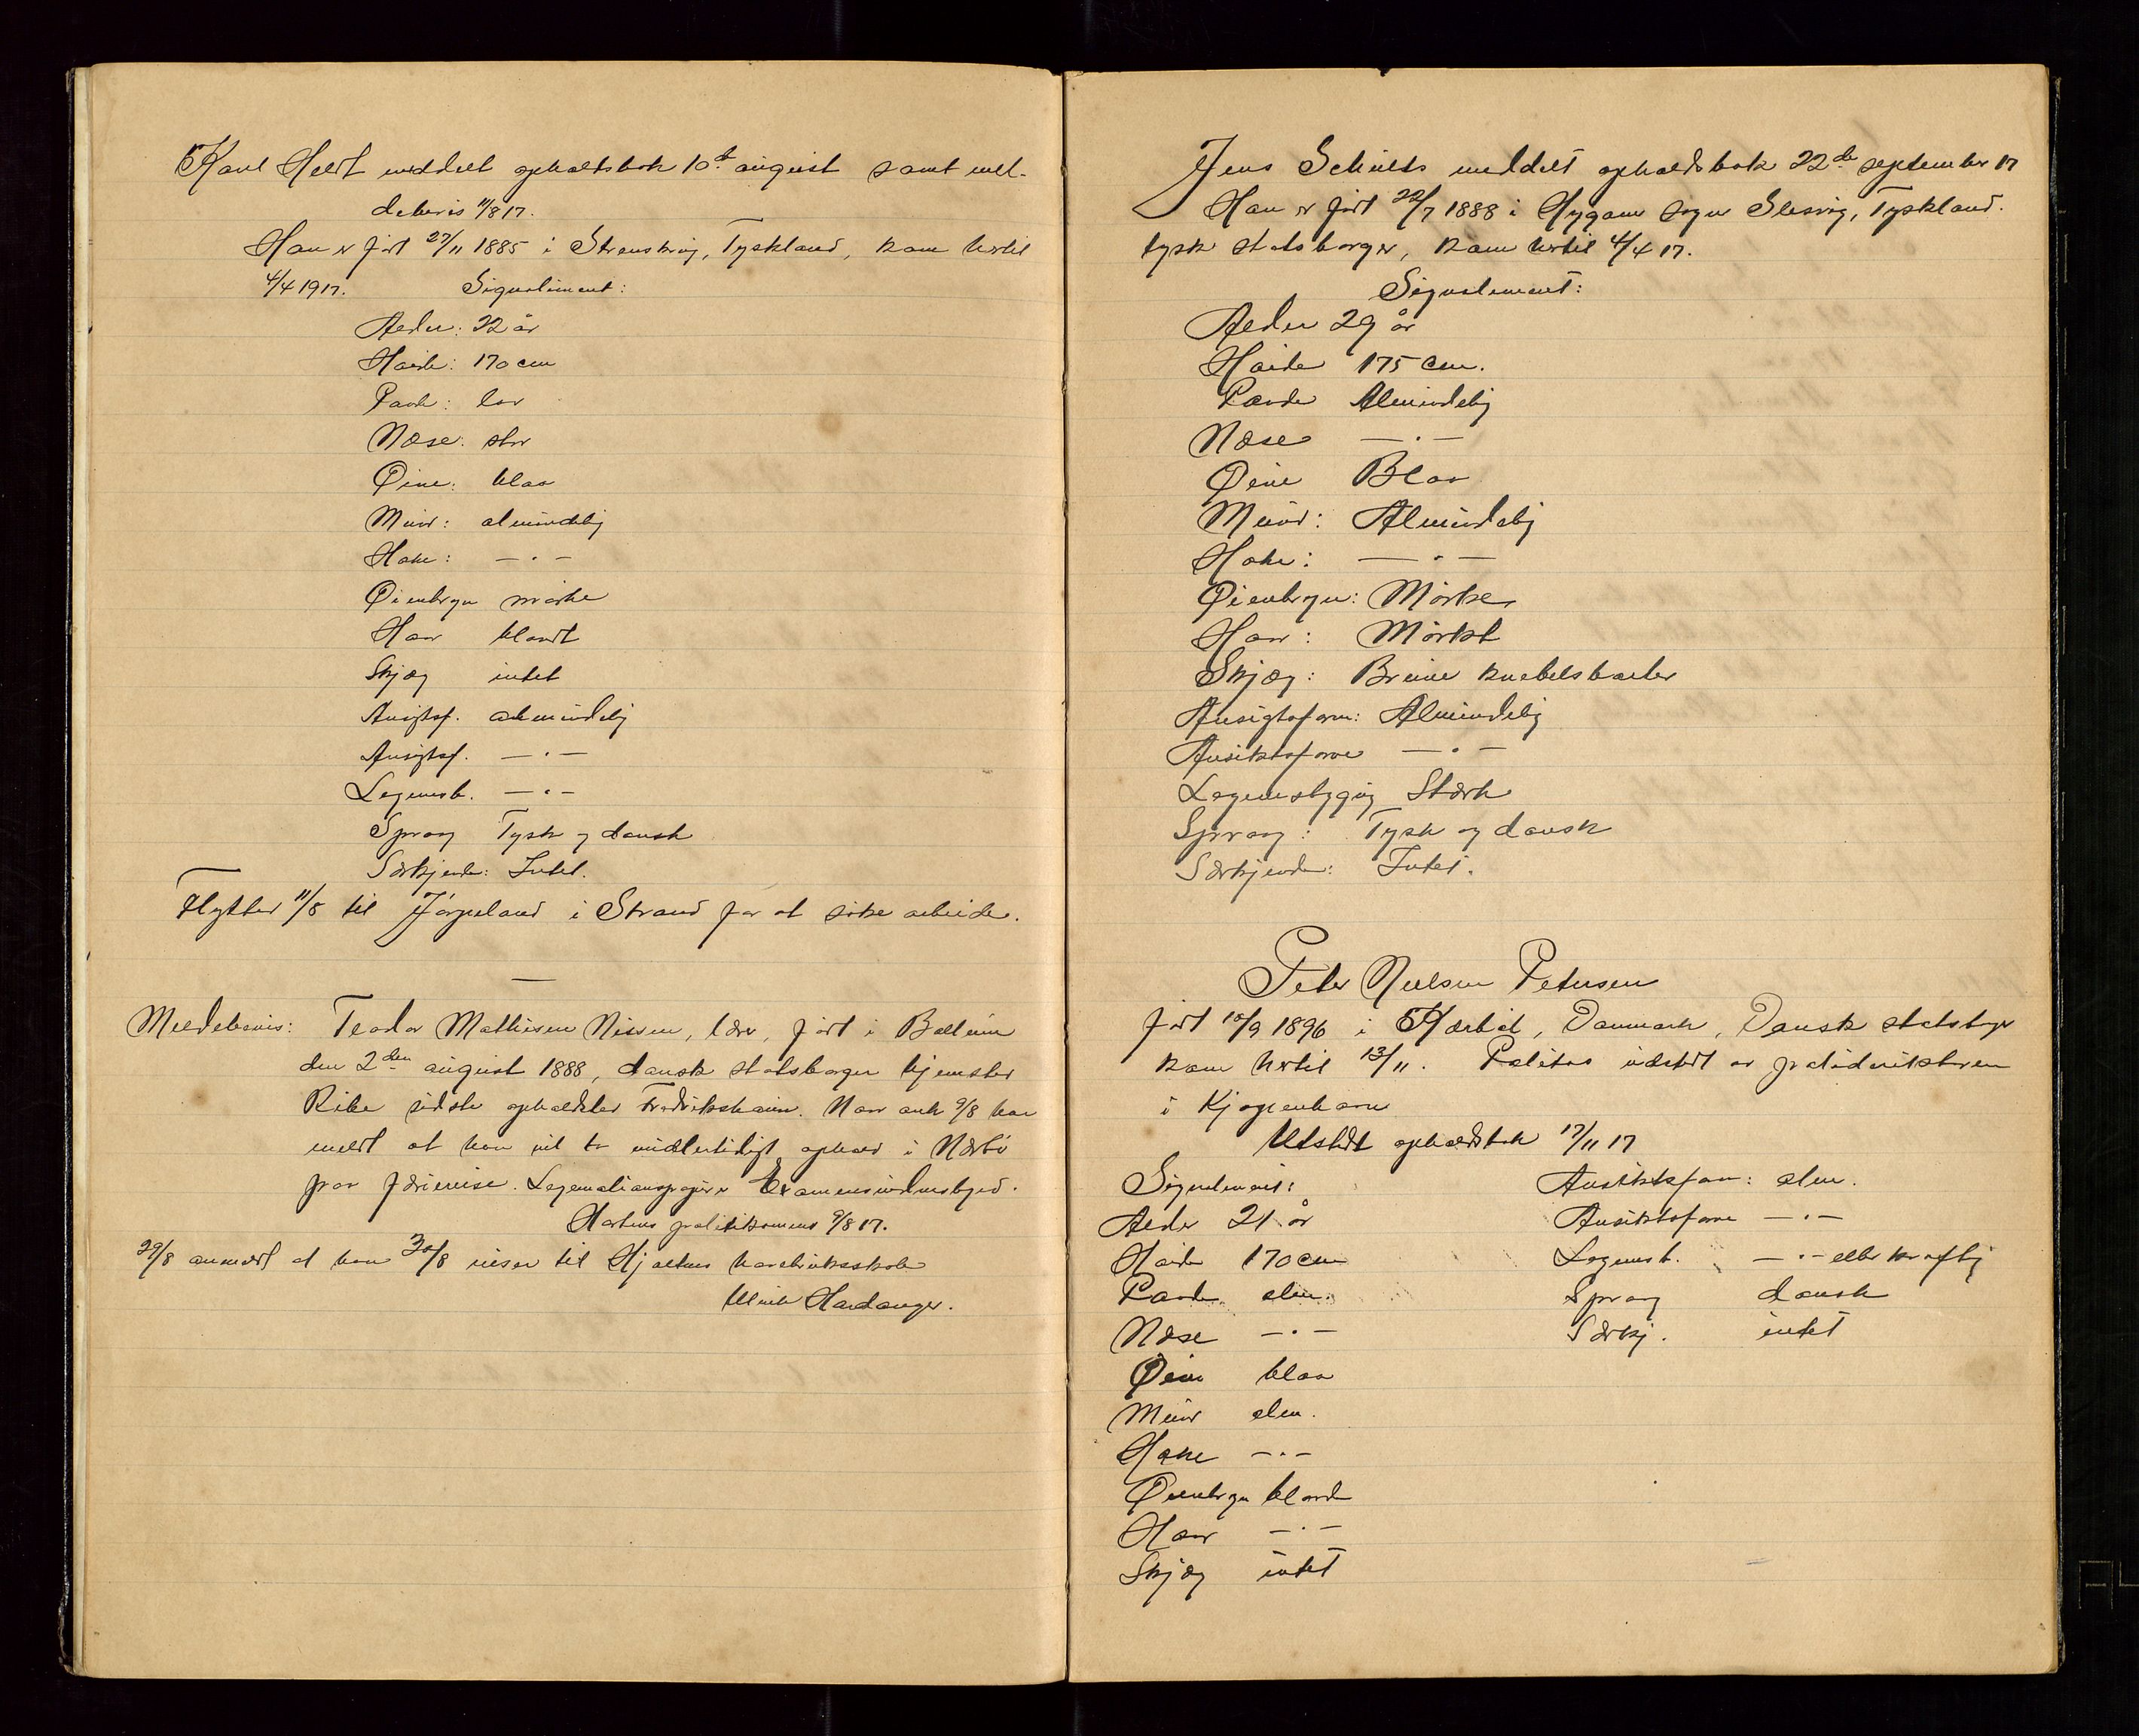 Karl Heldt meddelt opholdsbok 10de august samt mel-
debevis 11/8 17.
Han er født 27/11 1885 i Tyskland, kom hertil
4/4 1917. Signalement:
Alder: 22 år
Høide: 170 cm
Pande: lav
Næse: stor
Øine: blaa
Mund: almindelig
Hake: — " —
Øienbryn mørke
Haar blondt
Skjæg intet
Ansigtsf. almindelig
Ansigtsf. — " —
Legemsb. — " —
Sprog Tysk og dansk
Særkjende: Intet.
Flytter 11/8 til Jørpeland i Strand for at søke arbeide.
—
Meldebevis: Teodor Mathisen Nissen, lærer, født i Ballum
den 2den august 1888, dansk statsborger hjemsted
Ribe sidste opholdsted Fredrikshavn. Har ank 9/8 har
meldt at han vil ta midlertidigt ophold i Nærbø
paa feriereise. Legitimationspapir er Examensvidnesbyrd.
politikammer 9/8 17.
29/8 anmeldt at han 30/8 reiser til Hjeltnes havebruksskole
Ulvik Hardanger.
Jens Schultz meddelt opholdsbok 22de september 17
Han er født 22/7 1888 i Hygum sogn Slesvig, Tyskland.
tysk statsborger, kom hertil 4/4 17.
Signalement:
Alder 29 år
Høide 175 cm.
Pande Almindelig
Næse — " —
Øine Blaa
Mund: Almindelig
Hake: — " —
Øienbryn: Mørke
Haar: Mørkt
Skjæg: Brune knebelsbarter
Ansigtsform: Almindelig
Ansiktsfarve — " —
Legemsbygning Stærk
Sprog: Tysk og dansk
Særkjende: Intet.
Peter Nielsen Petersen
født 10/9 1896 i Danmark, Dansk statsborger
kom hertil 13/11. Politipas utstedt av politidirektøren
i Kjøpenhavn
Utstedt opholdsbok 17/11 17
Signalement: Ansiktsform: alm.
Alder 21 år Ansiktsfarve — " —
Høide 170 cm Legemsb. — " — eller kraftig
Pande alm. Sprog dansk
Næse — " — Særkj. intet
Øine blaa
Mund alm.
Hake — " —
Øienbryn blonde
Haar — " —
Skjæg intet